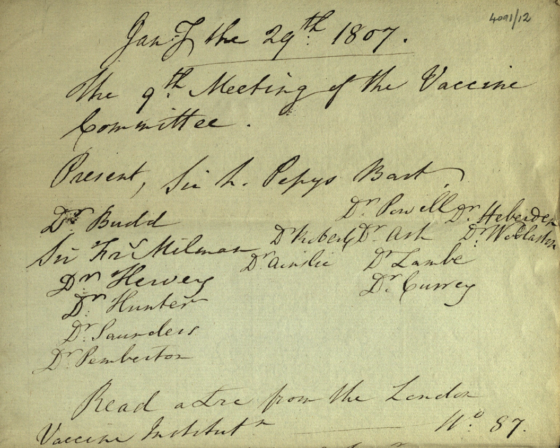 4091/12
Jan.y the 29th. 1807.
The 9th. Meeting of the Vaccine
Committee.
Present, Sir L. Pepys Bart.
Dr. Budd Dr. Powell Dr. Heberden
Sir Frs Milman Dr Roberts Dr. Ash Dr. Wollaston
Dr. Hervey Dr Ainslie Dr. Lambe
Dr. Hunter Dr. Currey
Dr. Saunders
Dr. Pemberton
Read a Lre from the London
Vaccine Institutn No. 87.